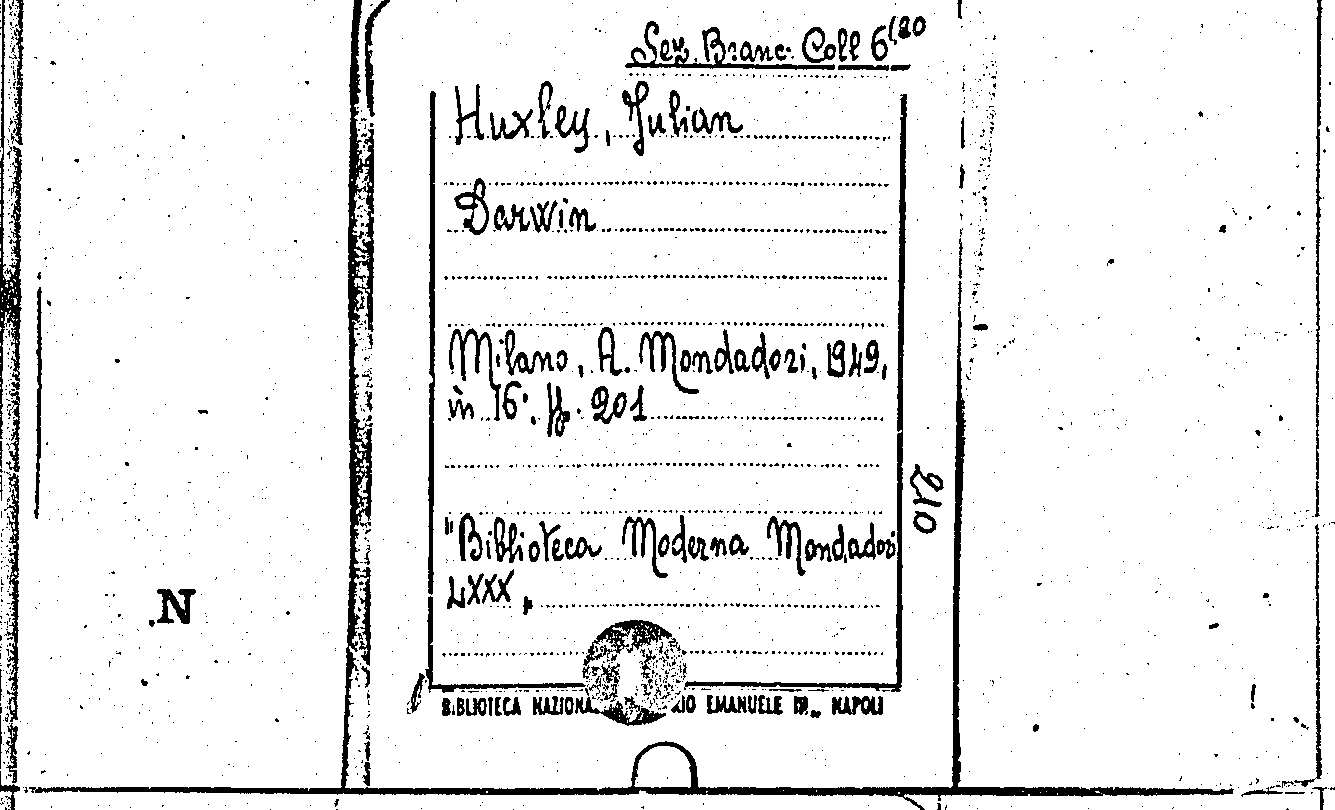 Sez. Branc. Coll 6(80
Huxley, Julian
Darwin
Milano, A. Mondadori, 1949,
in 16°. pp. 201
"Biblioteca Moderna Mondadori
LXXX„
210
.N
BIBLIOTECA NAZIONA IO EMANUELE III„ NAPOLI